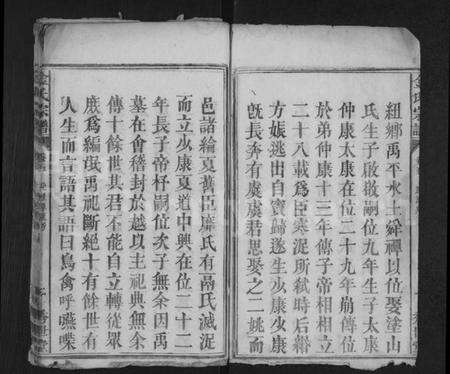 紐鄉禹平水土舜禪以位娶塗山
氏生子啟啟嗣位九年生子太康
仲康太康在位二十九年崩傳位
於弟仲康十三年傳子帝相相立
二十八載爲臣寒浞所弒時后緡
方娠逃出自竇歸遂生少康少康
旣長奔有虞虞君思娶之二姚而
邑諸綸夏舊臣靡氏有鬲氏滅浞
而立少康夏道中興在位二十二
年長子帝杼嗣位次子無余因禹
墓在會稽封於越以主祀典無余
傳十餘世其君不能自立轉從眾
庶爲編氓禹祀斷絕十有餘世有
人生而言語其語曰鳥禽呼嚥喋